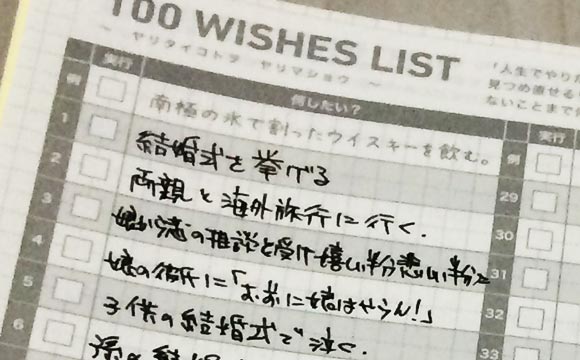 100 WISHES LIST
~ ヤリタイコトヲ ヤリマショウ ~
「人生でやり
見つめ直せる
ないことまで
実行 何したい? 実行
例 南極の氷で割ったウイスキーを飲む。 例
1 結婚式を挙げる 29
2 両親と海外旅行に行く. 30
3 娘から恋の相談を受け嬉しい 31
4 娘の彼氏に「おまえに娘はやらん!」 32
5 子供の結婚式で泣く. 33
6 孫の結婚